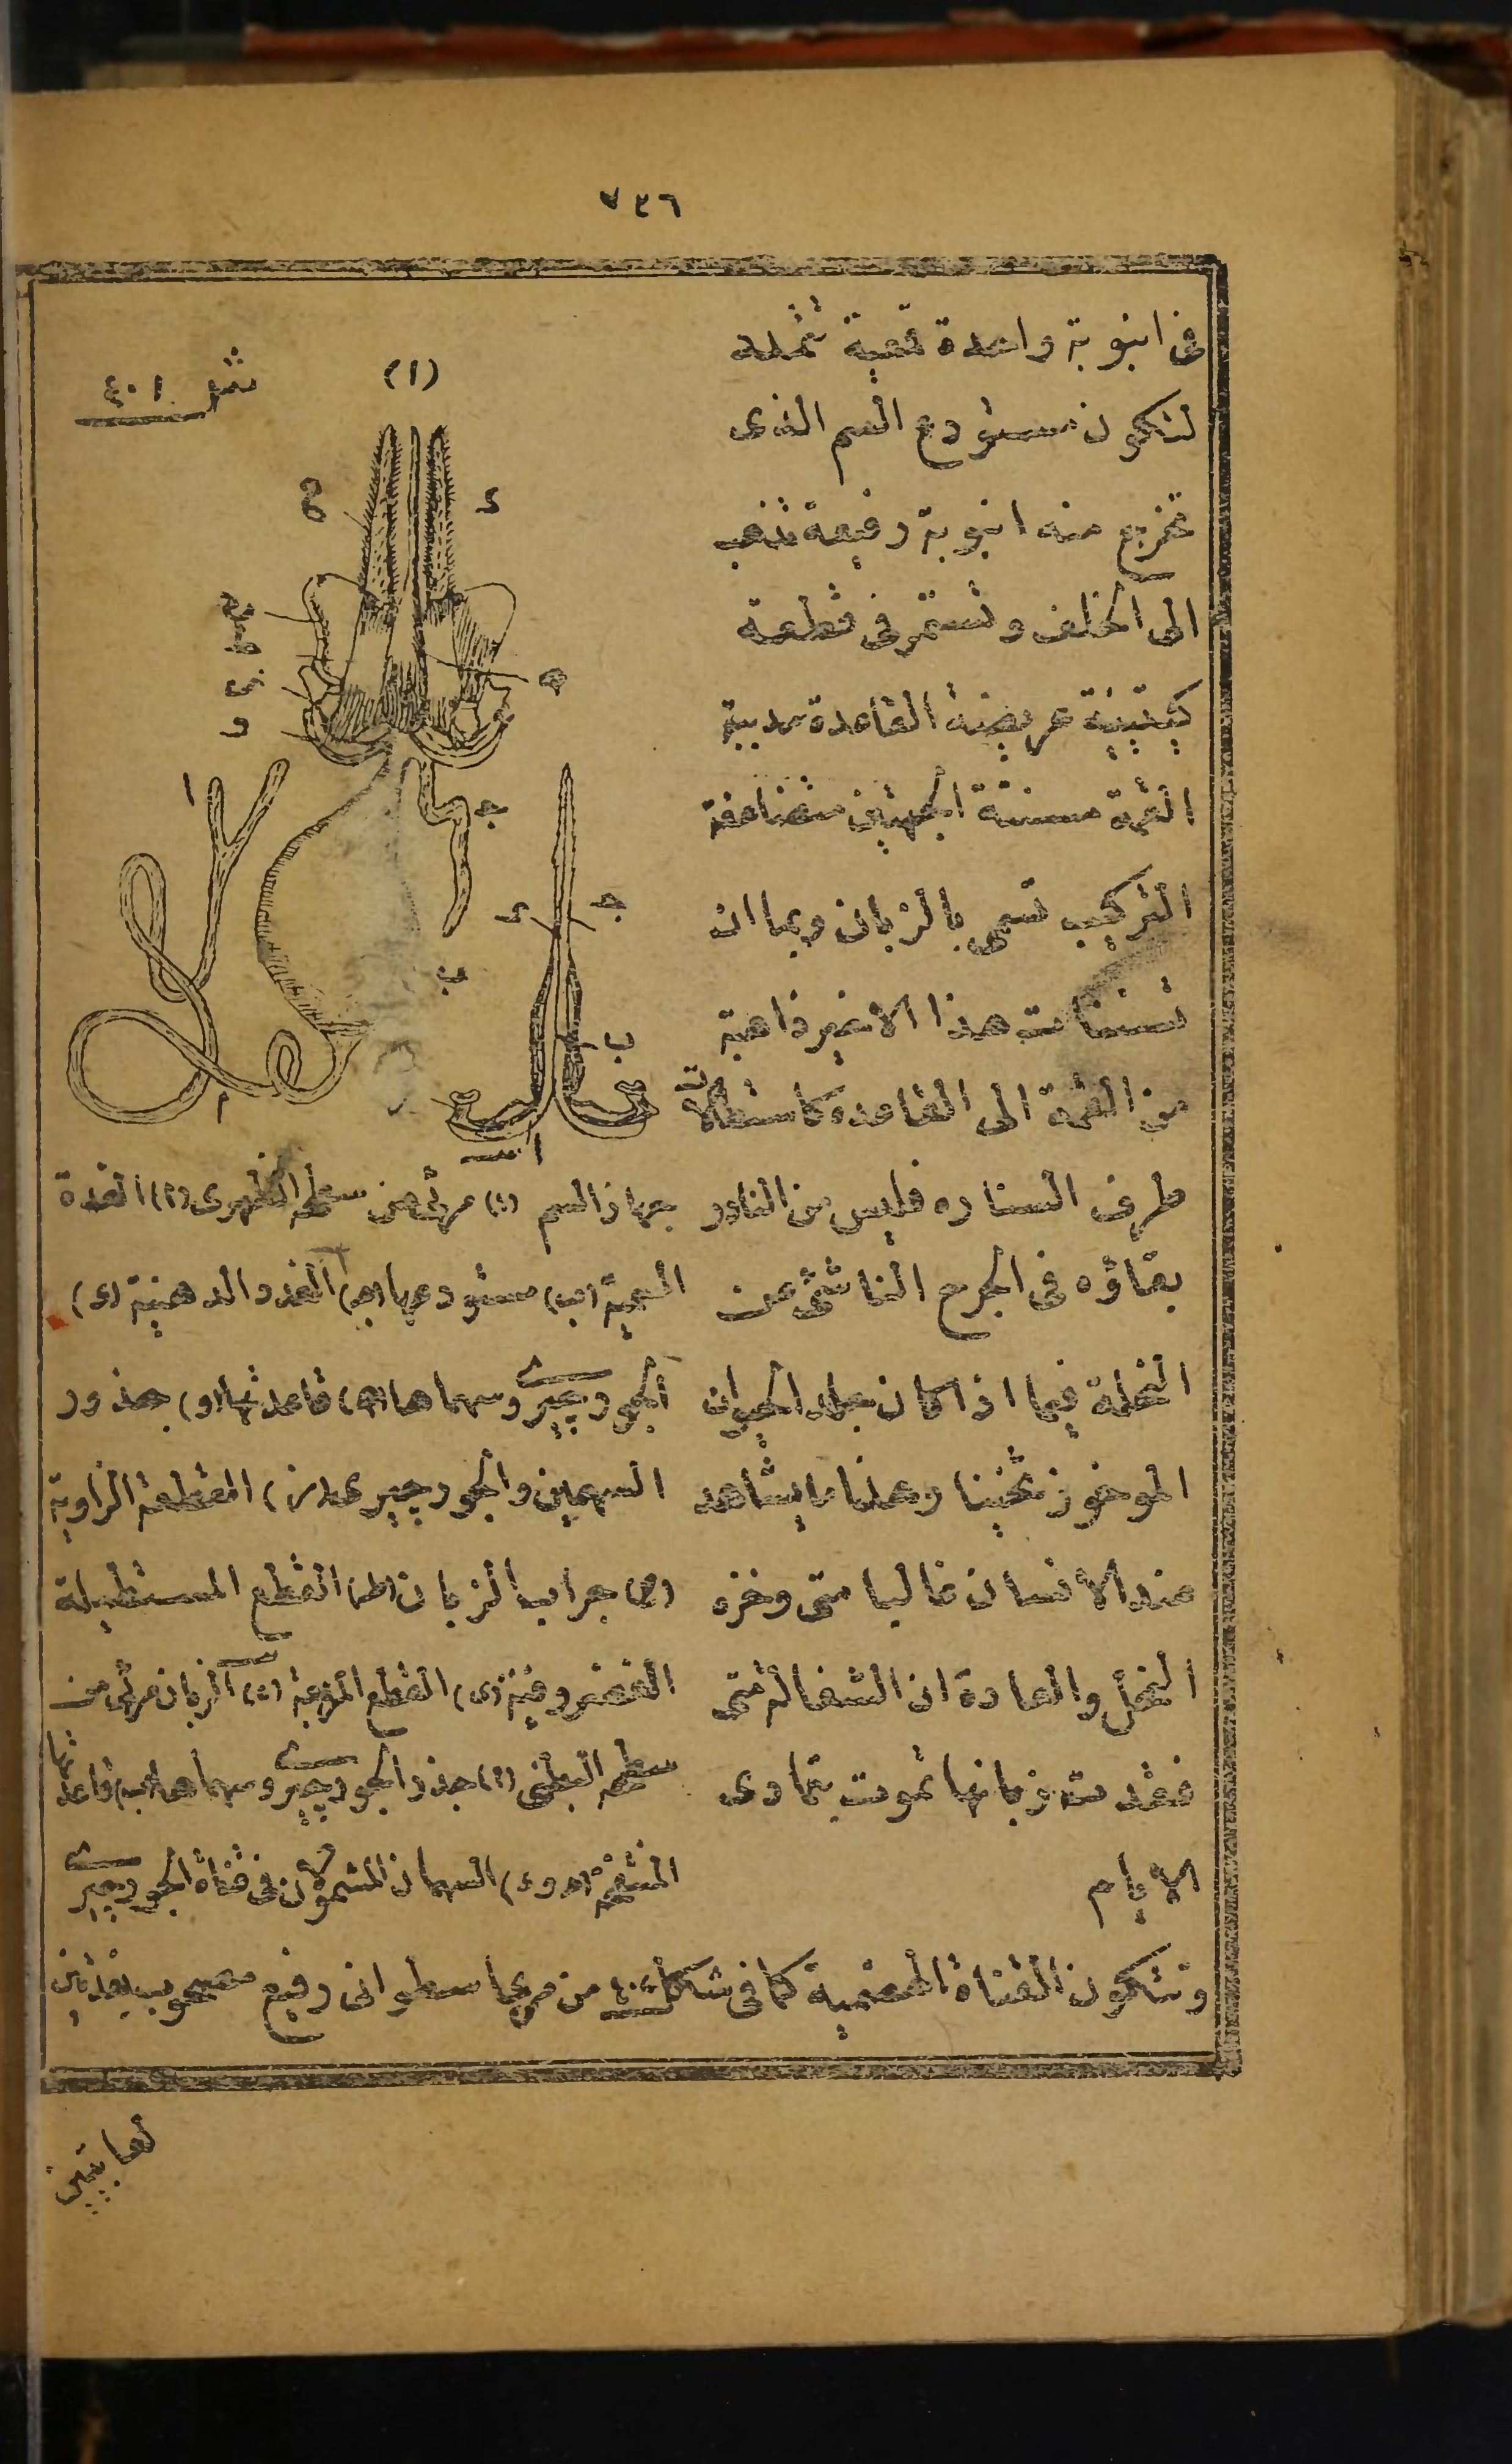 ٧٣٦
فى انبوبة واحدة قصبية تمتد
لتكون مستودع السم الذى
تخرج منه انبوبة رفيعة تذهب
الى الخلف وتستمر فى قطعة
كيتينية عريضة القاعدة مدببة
القمة مسننة الجهتين متضاعفة
التركيب تسمى بالزبان وبما ان
تسننات هذا الاخير ذاهبة
من القمة الى القاعدة كاستطالات
طرف السنارة فليس من النادر
بقاؤه فى الجرح الناشئ عن
النحلة فيما اذا كان جلد الحيوان
الموخوز ثخينا وهذا ما يشاهد
عند الانسان غالبا متى وخزه
النحل والعادة ان الشغالة متى
فقدت زبانها تموت بتمادى
الايام
شكل ٤٠١
(١)
جهاز السم (١) مرئى من سطحه الظهرى (أ) الغدة
السمية (ب) مستودعها (ج) الغدد الدهنية (د)
الجورجيرى وسهماها (ه) قاعدتها (و) جذور
السهمين والجورجيرى (ز) القطعة الزاوية
(ح) جراب الزبان (ط) القطع المستطيلة
الغضروفية (ى) القطع المربعة (٢) الزبان مرئى من
سطحه البطنى (أ) جذر الجورجيرى وسهماها (ب) قاعدتها
المنتفخة (ج و د) السهمان المشمولان فى قناة الجورجيرى
وتتكون القناة الهضمية كما فى شكل من مرىء اسطوانى رفيع مصحوب بغدتين
لعابيتين